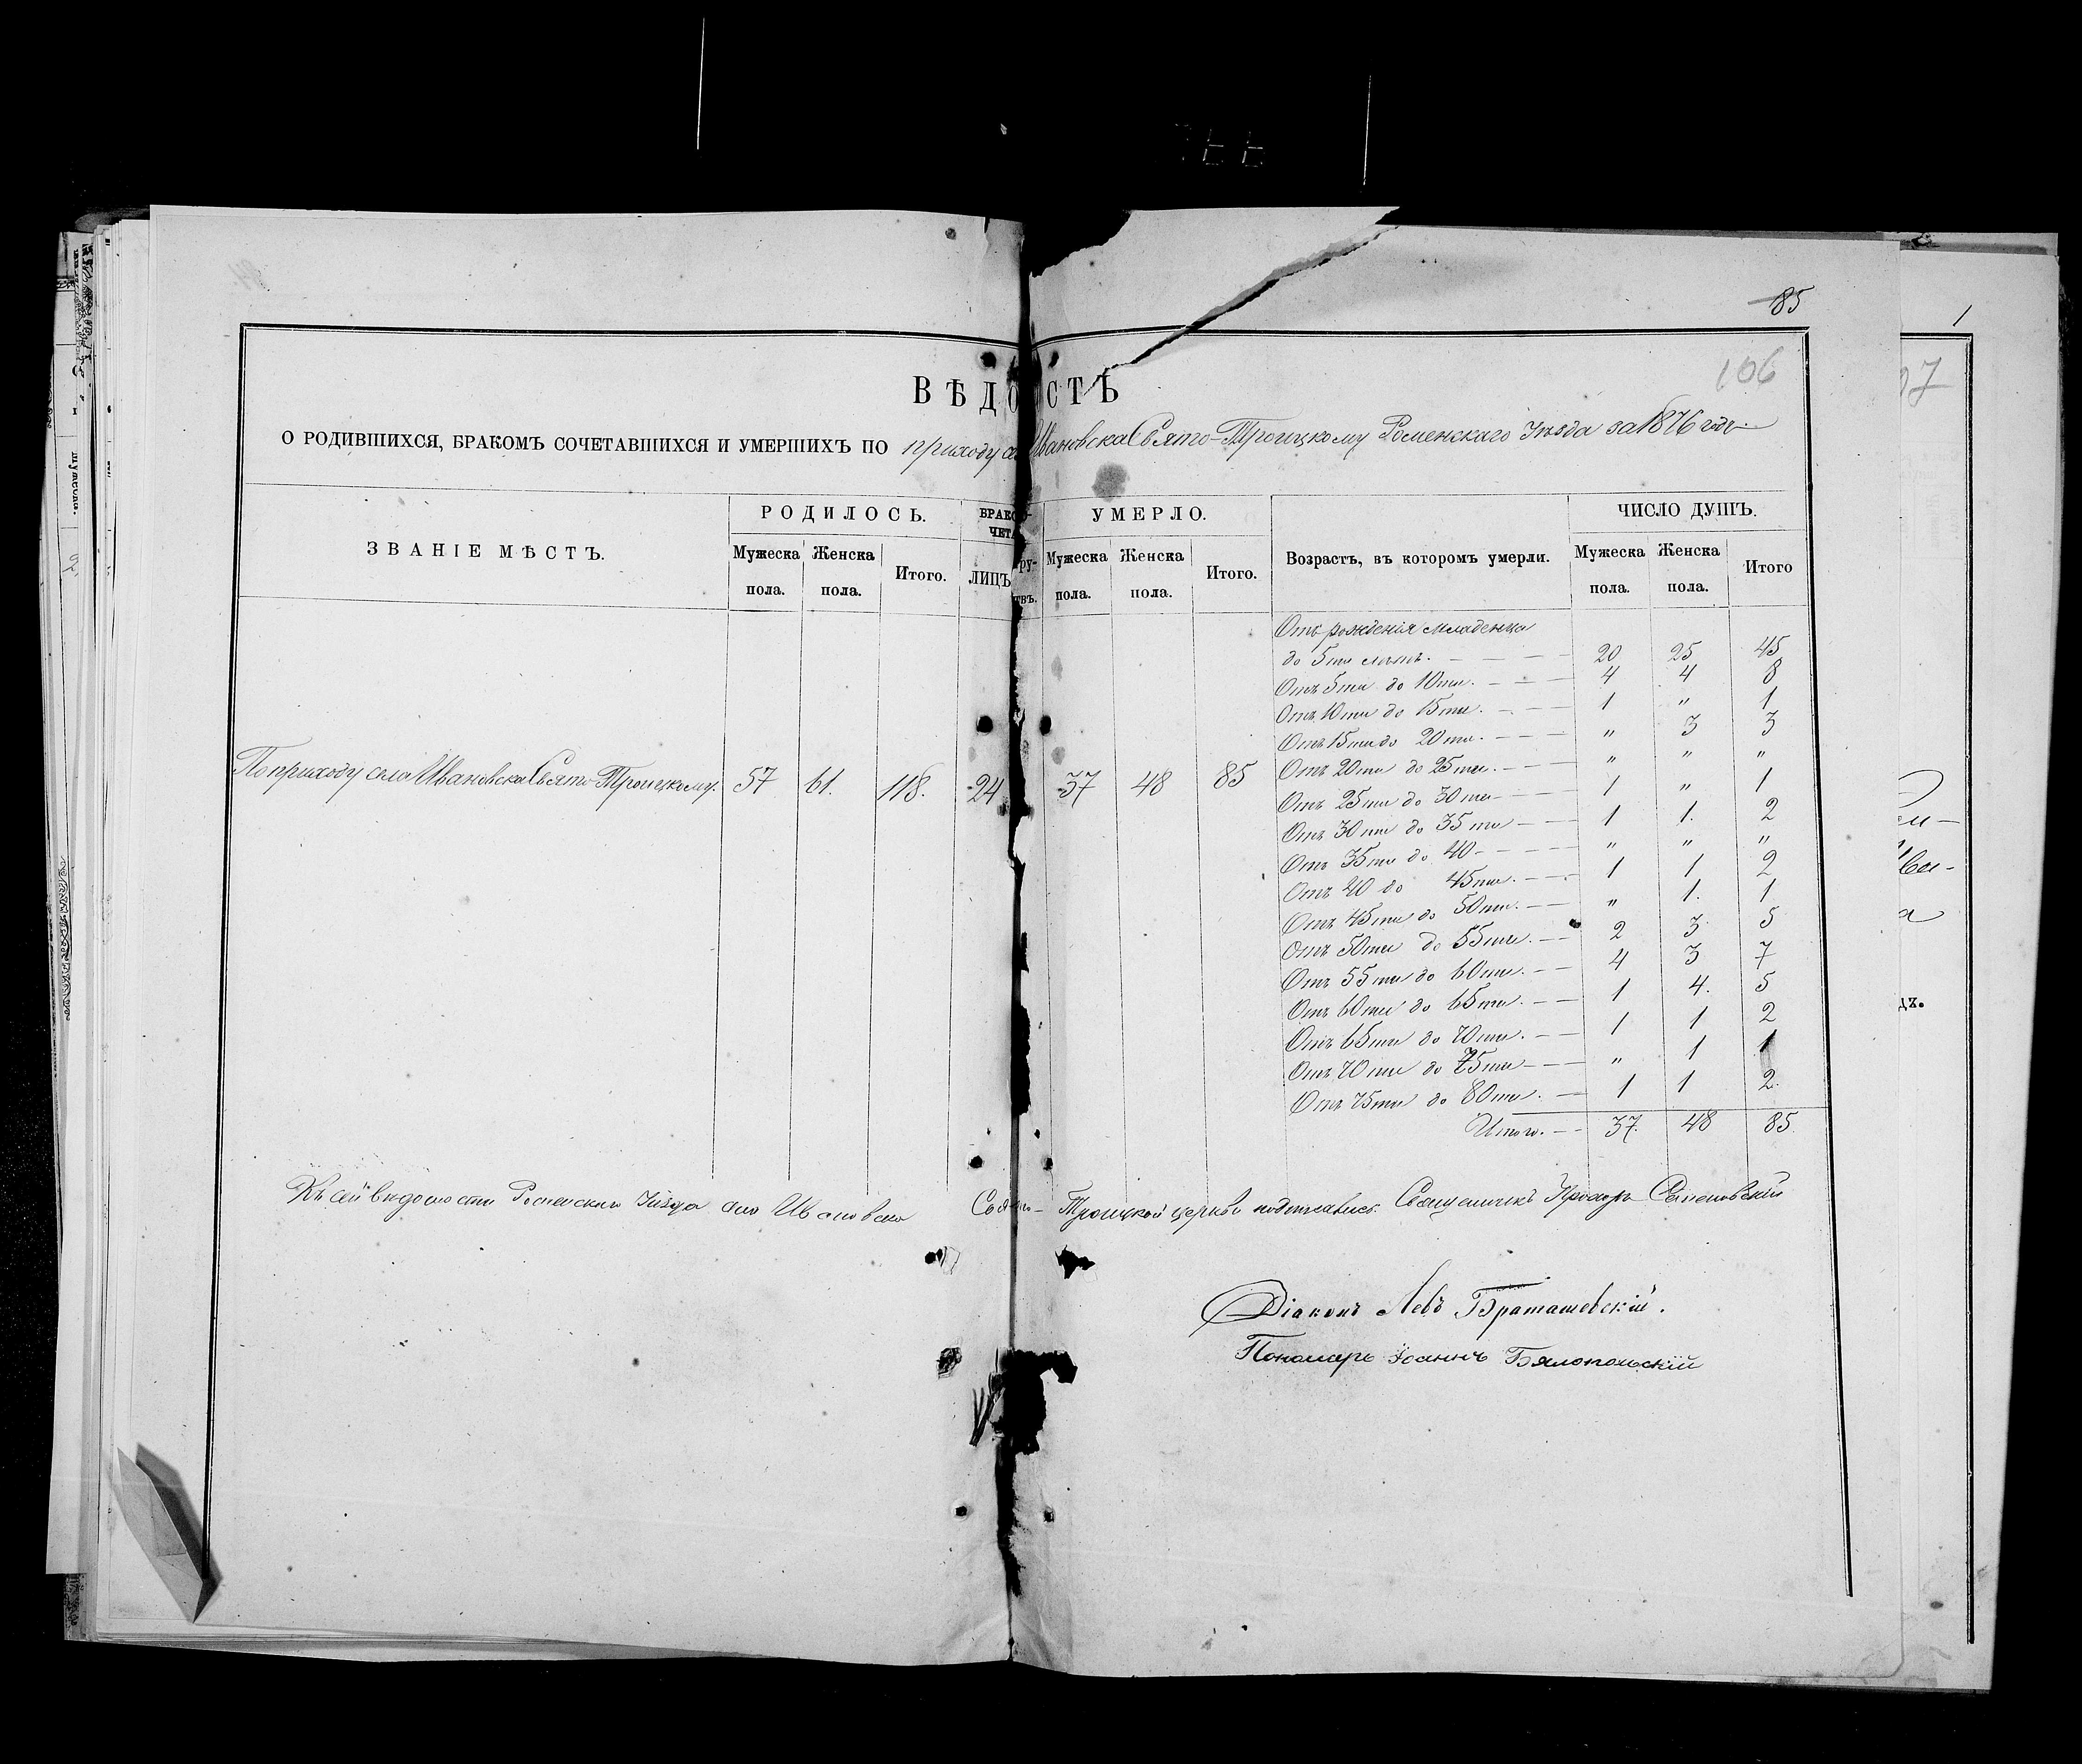 85
1
106
07
ВѢДОСТЬ
О РОДИВШИХСЯ, БРАКОМЪ СОЧЕТАВШИХСЯ И УМЕРШИХЪ ПО приходу села Ивановска Свято-Троицкому Роменскаго Уѣзда за 1876 годъ
ЗВАНІЕ МѢСТЪ.
РОДИЛОСЬ.
Мужеска пола.
Женска пола.
Итого.
БРАКО-
ЧЕТА
ЛИЦЪ
УМЕРЛО.
Мужеска пола.
Женска пола.
Итого.
Возрастъ, въ которомъ умерли.
ЧИСЛО ДУШЪ.
Мужеска пола.
Женска пола.
Итого
По приходу села Ивановска Свято Троицкому. 57 61. 118. 24 37 48 85
Отъ рожденія младенца
до 5ти лѣтъ. 20 25 45
Отъ 5ти до 10ти. 4 4 8
Отъ 10ти до 15ти. 1 " 1
Отъ 15ти до 20ти. " 3 3
Отъ 20ти до 25ти. " " "
Отъ 25ти до 30ти 1 " 1
Отъ 30ти до 35ти 1 1. 2
Отъ 35ти до 40 " " "
Отъ 40 до 45ти. 1 1 2
Отъ 45ти до 50ти. " 1. 1
Отъ 50ти до 55ти. 2 3 5
Отъ 55ти до 60ти. 4 3 7
Отъ 60ти до 65ти. 1 4. 5
Отъ 65ти до 70ти. 1 1 2
Отъ 70ти до 75ти " 1 1
Отъ 75ти до 80ти. 1 1 2.
Итого. 37. 48 85.
Къ сей вѣдомости Роменскаго Уѣзда села Ивановска Свято-Троицкой церкви подписались. Священникъ Прохоръ
Діаконъ Левъ Браташевскій.
Пономарь Іоаннъ Бялопольскій